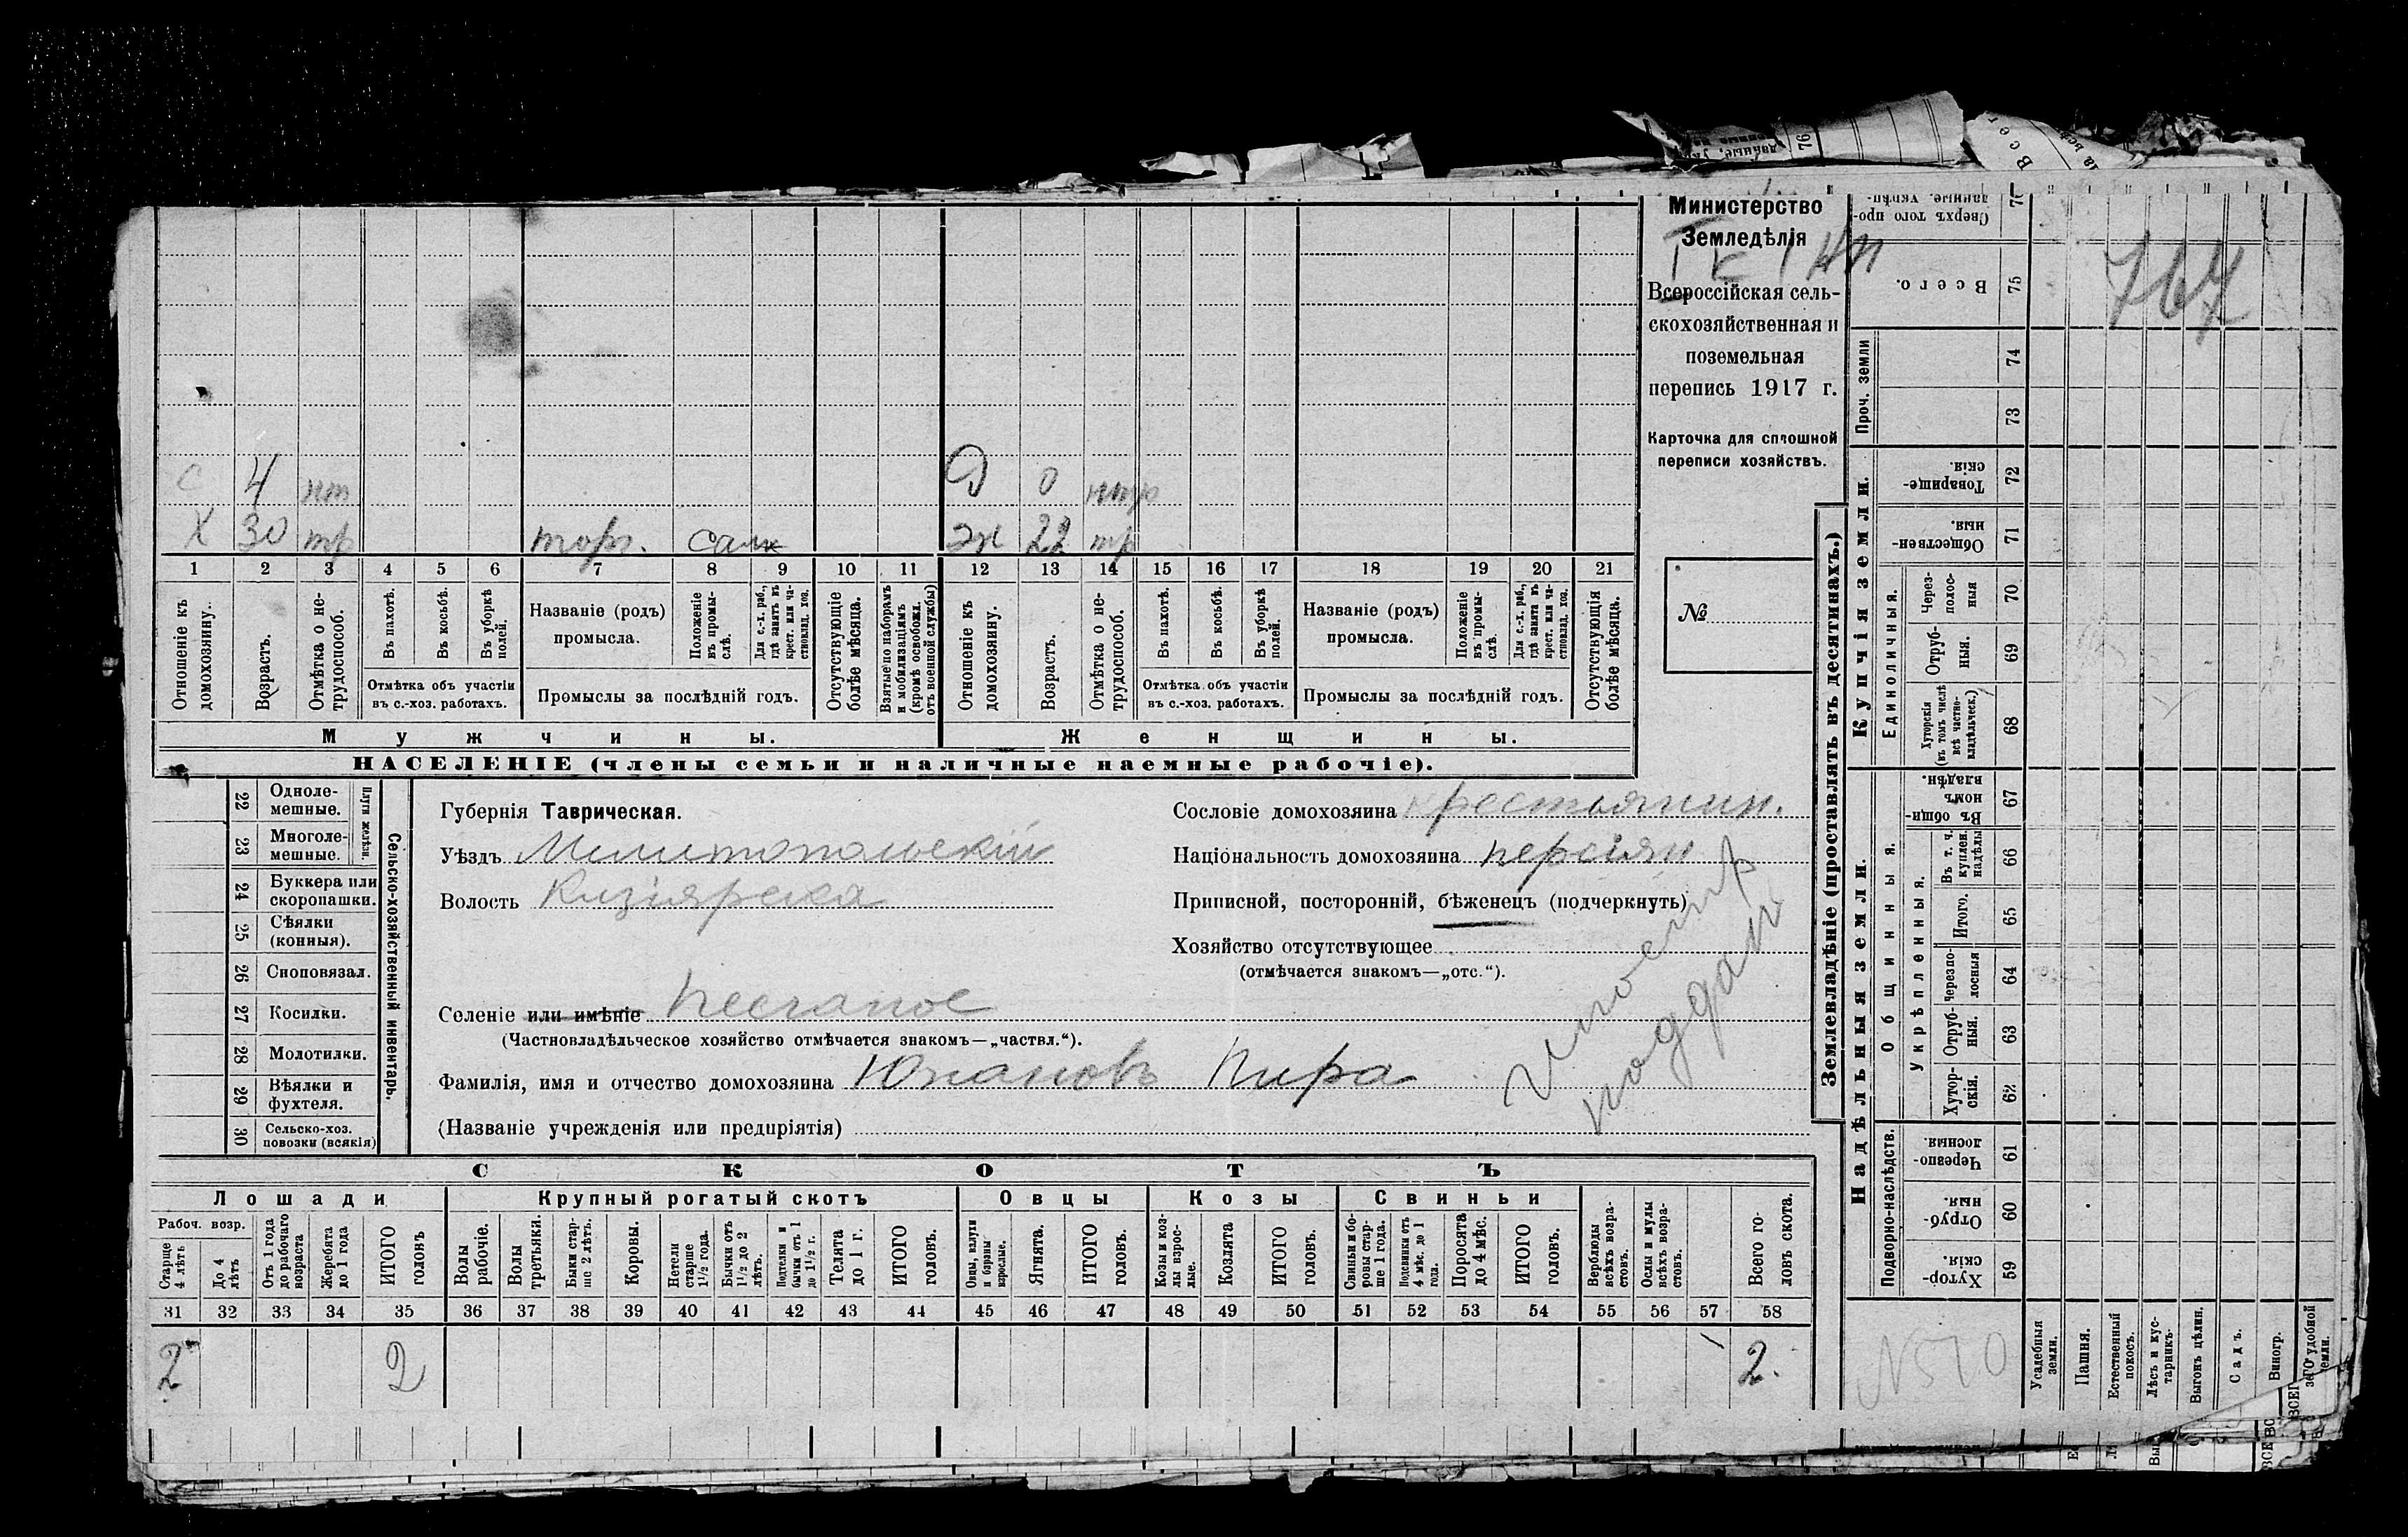 Министерство
Земледѣлія
Всероссійская сель-
скохозяйственная и
поземельная
перепись 1917 г.
Карточка для сплошной
переписи хозяйствъ.
№
767
С 4 нт
Д 0 нтр
Х 30 тр торг. сам
Эж 22 тр
1 2 3 4 5 6 7 8 9 10 11 12 13 14 15 16 17 18 19 20 21
Отношеніе къ домохозяину.
Возрастъ.
Отмѣтка о не-трудоспособ.
Въ пахотѣ.
Въ косьбѣ.
Въ уборкѣ полей.
Отмѣтка объ участіи
въ с.-хоз. работахъ.
Названіе (родъ)
промысла.
Положеніе въ промы-слѣ.
Для с.-х. раб., гдѣ занятъ въ крест. или ча-стновлад. хоз.
Промыслы за послѣдній годъ.
Отсутствующіе болѣе мѣсяца.
Взятые по наборамъ и мобилизаціямъ (кромѣ освобожд. отъ военной службы)
Отношеніе къ домохозяину.
Возрастъ.
Отмѣтка о не-трудоспособ.
Въ пахотѣ.
Въ косьбѣ.
Въ уборкѣ полей.
Отмѣтка объ участіи
въ с.-хоз. работахъ.
Названіе (родъ)
промысла.
Положеніе въ промы-слѣ.
Для с.-х. раб., гдѣ занята въ крест. или ча-стновлад. хоз.
Промыслы за послѣдній годъ.
Отсутствующія болѣе мѣсяца.
Мужчины.
Женщины.
НАСЕЛЕНІЕ (члены семьи и наличные наемные рабочіе).
22 Одноле-мешные.
23 Многоле-мешные.
Плуги желѣзн.
24 Буккера или скоропашки.
25 Сѣялки (конныя).
26 Сноповязал.
27 Косилки.
28 Молотилки.
29 Вѣялки и фухтеля.
30 Сельско-хоз. повозки (всякія)
Сельско-хозяйственный инвентарь.
Губернія Таврическая.
Уѣздъ Мелитопольскій
Волость Кизіярска
Селеніе или имѣніе Песчаное
(Частновладѣльческое хозяйство отмѣчается знакомъ—„частвл.“).
Фамилія, имя и отчество домохозяина Юнановъ Пира
(Названіе учрежденія или предпріятія)
Сословіе домохозяина крестьянин.
Національность домохозяина персіян
Приписной, посторонній, бѣженецъ (подчеркнуть)
Хозяйство отсутствующее
(отмѣчается знакомъ—„отс.“).
Иностр
поддан
СКОТЪ
Лошади
Крупный рогатый скотъ
Овцы
Козы
Свиньи
Рабоч. возр.
Старше 4 лѣтъ
До 4 лѣтъ
Отъ 1 года до рабочаго возраста
Жеребята до 1 года
ИТОГО головъ
Волы рабочіе.
Волы третьяки.
Быки стар-ше 2 лѣтъ.
Коровы.
Нетели старше 1½ года.
Бычки отъ 1½ до 2 лѣтъ.
Подтелки и бычки отъ 1 до 1½ г.
Телята до 1 г.
ИТОГО головъ.
Овцы, валухи и бараны взрослые.
Ягнята.
ИТОГО головъ.
Козы и коз-лы взрос-лые.
Козлята
ИТОГО головъ.
Свиньи и бо-ровы стар-ше 1 года.
Подсвинки отъ 4 мѣс. до 1 года.
Поросята до 4 мѣс.
ИТОГО головъ.
Верблюды всѣхъ возра-стовъ.
Ослы и мулы всѣхъ возра-стовъ.
Всего го-ловъ скота.
31 32 33 34 35 36 37 38 39 40 41 42 43 44 45 46 47 48 49 50 51 52 53 54 55 56 57 58
2 2 2.
Землевладѣніе (проставлять въ десятинахъ.)
Купчія земли.
Надѣльныя земли.
Сверхъ того про-
Всего. 75
Проч. земли 74
73
Товарище-скія. 72
Обществен-ныя. 71
Единоличныя.
Через-полос-ныя 70
Отруб-ныя. 69
Хуторскія (въ томъ числѣ всѣ частно-владѣльческ.) 68
Общинныя.
Въ общи-номъ владѣн. 67
Укрѣпленныя.
Въ т. ч. куплен. надѣлы 66
Итого. 65
Черезпо-лосныя 64
Отруб-ныя. 63
Хутор-скія. 62
Подворно-наслѣдств.
Черезпо-лосныя 61
Отруб-ныя. 60
Хутор-скія. 59
N 570
Усадебныя земли.
Пашня.
Естественный покосъ.
Лѣсъ и кус-тарникъ.
Выгонъ цѣлин.
Садъ.
Виногр.